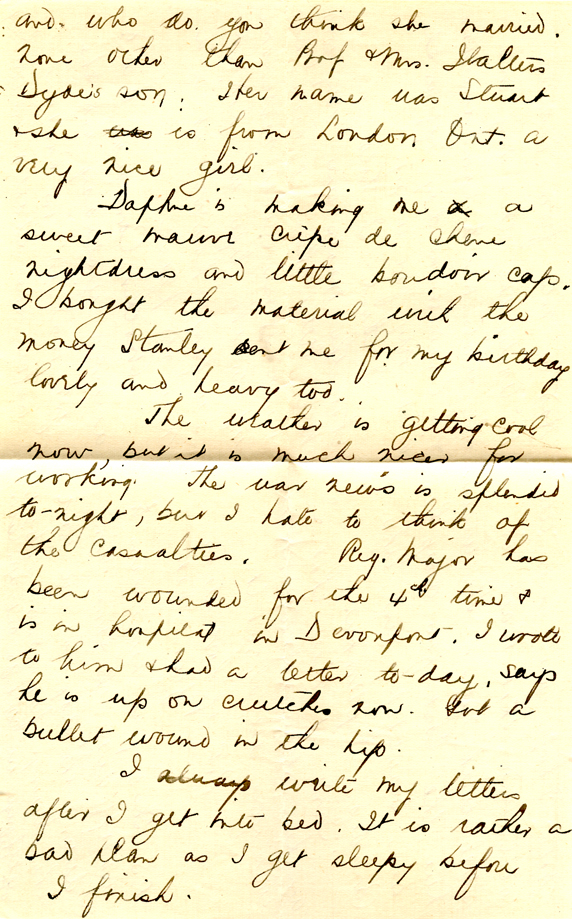 and who do you think she married.
None other than Prof & Mrs. Walters
Dyde's son. Her name was Stuart
& she was is from London Ont. a
very nice girl.
Daphne is making me a a
sweet mauve crêpe de chene
nightdress and little boudoir cap.
I bought the material with the
money Stanley sent me for my birthday
lovely and heavy too.
The weather is getting cool
now, but it is much nicer for
working. The war news is splendid
to-night, but I hate to think of
the casualties. Reg. Major has
been wounded for the 4th time &
is in hospital in Devonport. I wrote
to him & had a letter to-day, says
he is up on crutches now. Got a
bullet wound in the hip.
I always write my letters
after I get into bed. It is rather a
bad plan as I get sleepy before
I finish.